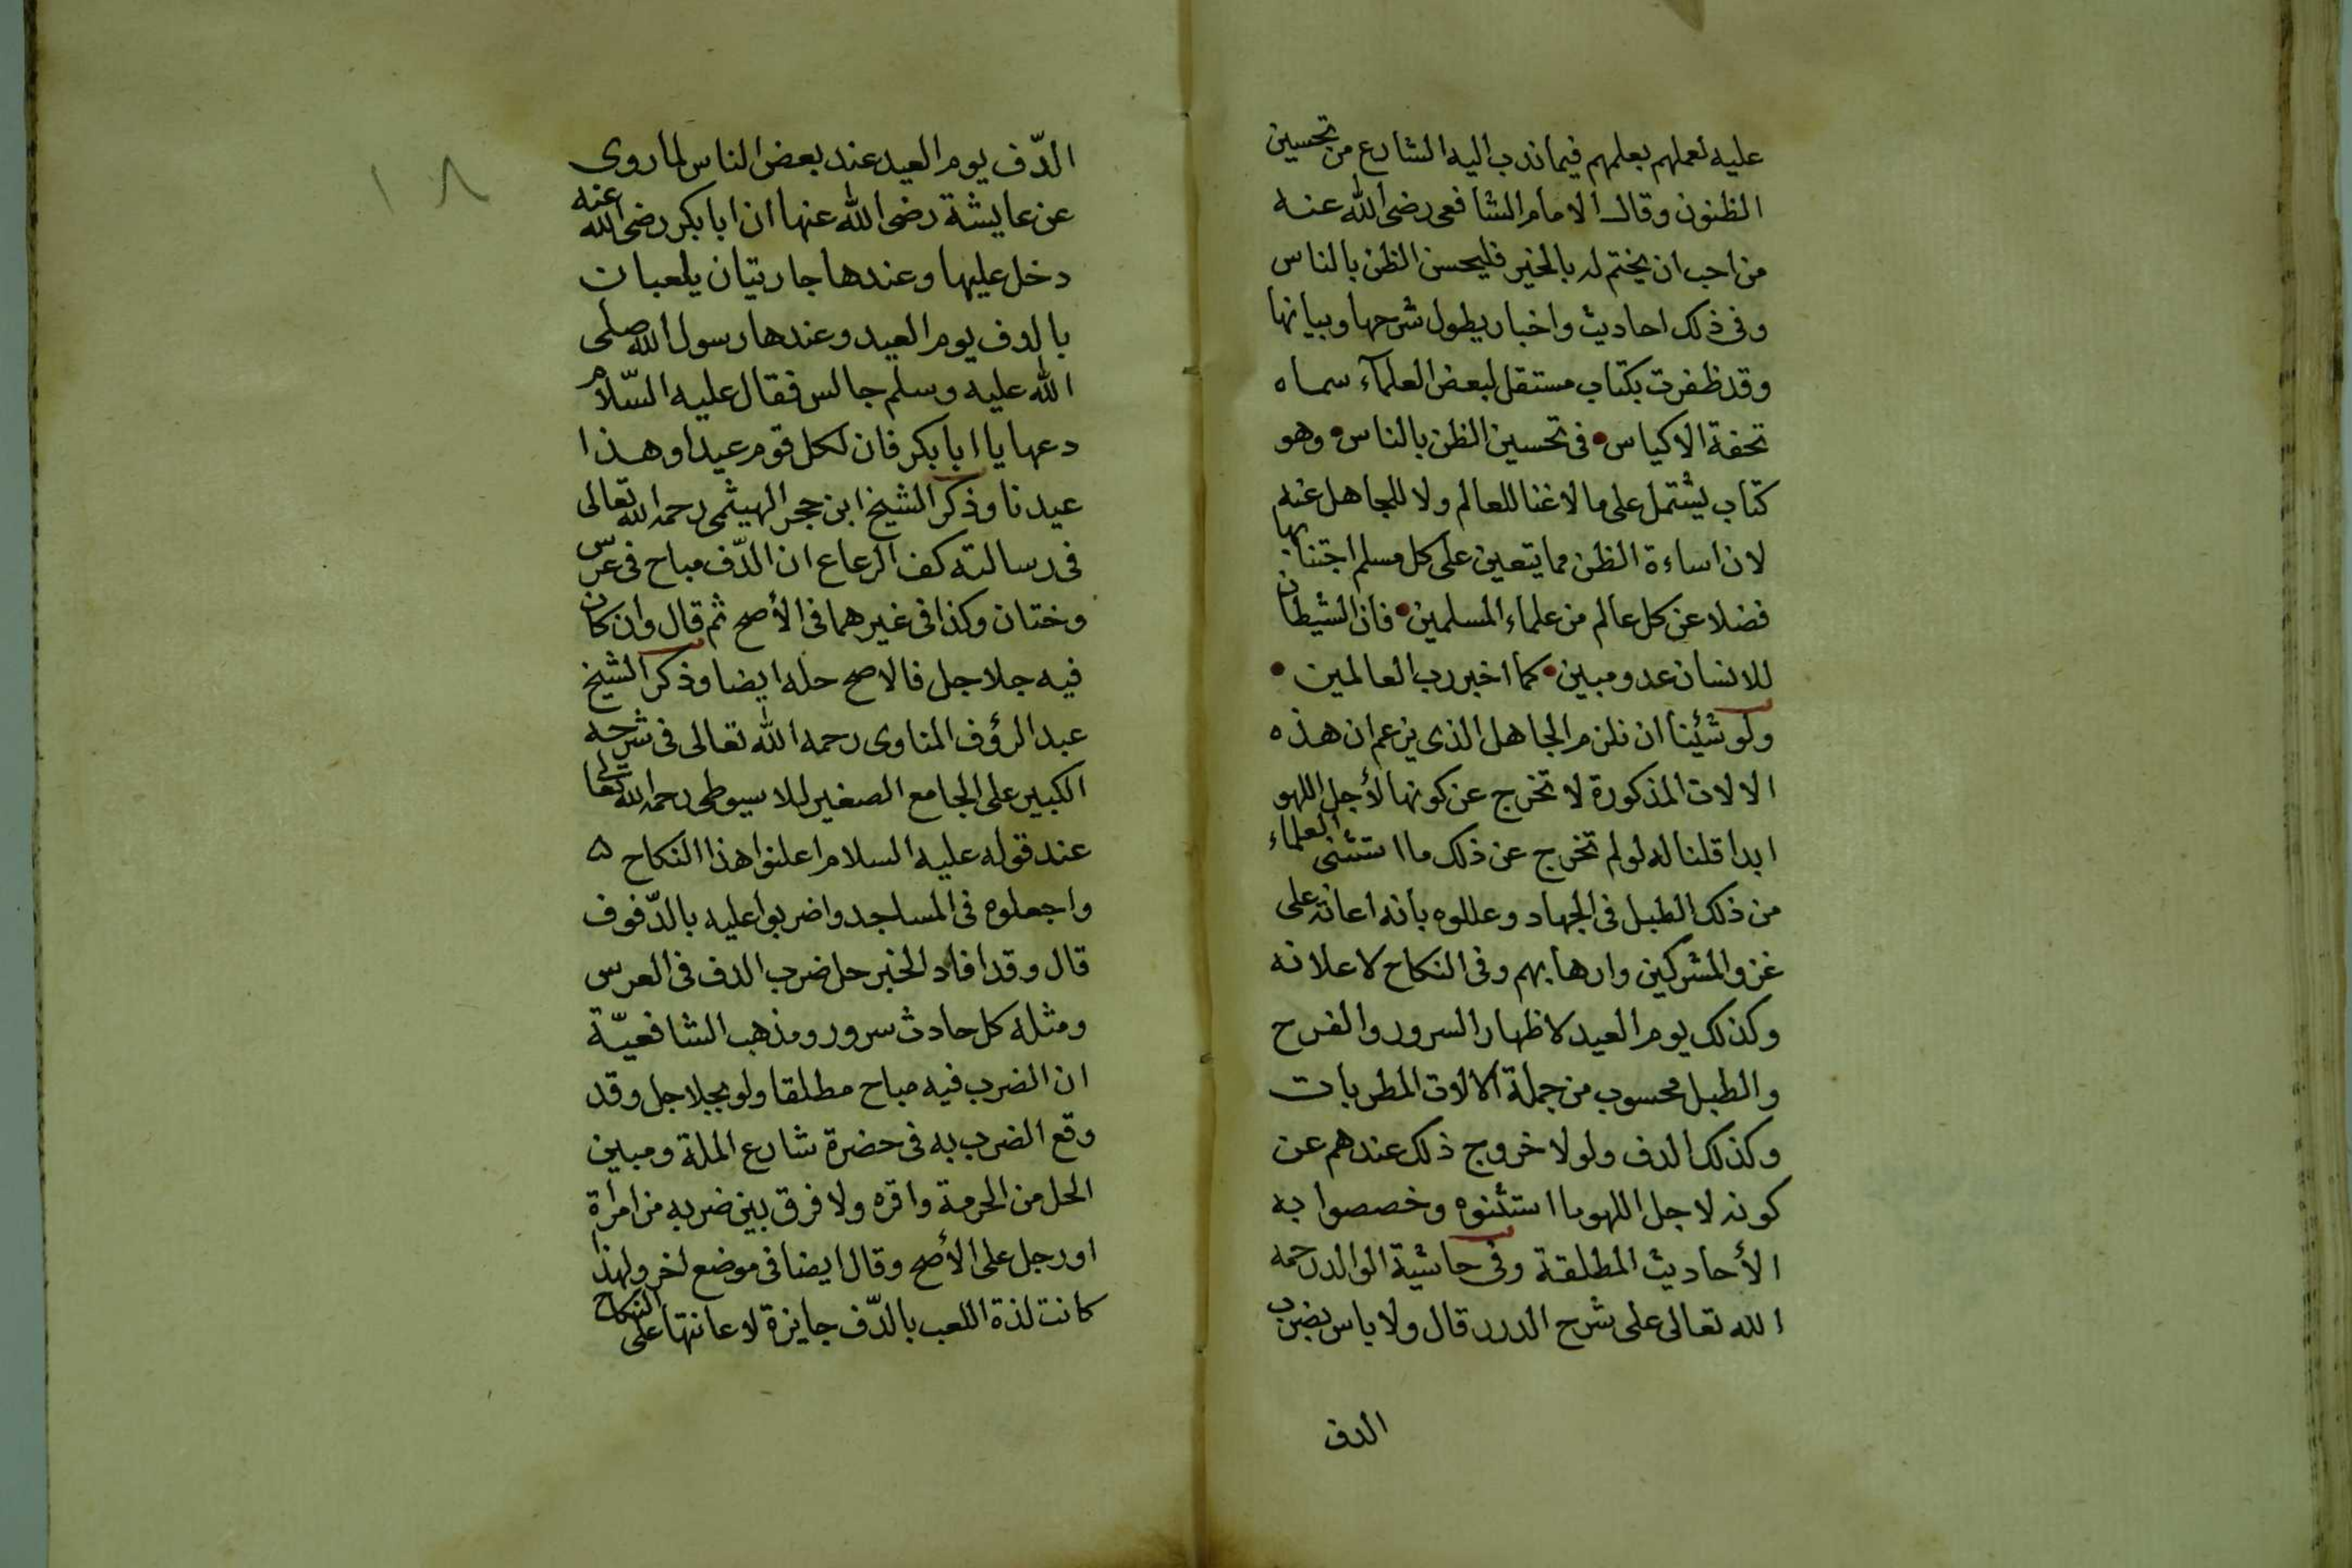 عليه لعملهم بعلمهم فيما ندب اليه الشارع من تحسين
الظنون وقال الامام الشافعي رضى الله عنه
من احب ان يختم له بالخير فليحسن الظن بالناس
وفى ذلك احاديث واخبار يطول شرحها وبيانها
وقد ظفرت بكتاب مستقل لبعض العلمآء سماه
تحفة الاكياس • فى تحسين الظن بالناس • وهو
كتاب يشتمل على ما لاغنا للعالم ولا للجاهل عنه
لان اساءة الظن مما يتعين على كل مسلم اجتنابها
فضلا عن كل عالم من علماء المسلمين • فان الشيطان
للانسان عدو مبين • كما اخبر رب العالمين •
ولو شئينا ان نلزم الجاهل الذى يزعم ان هذه
الالات المذكورة لا تخرج عن كونها لأجل اللهو
ابدا قلنا له لو لم تخرج عن ذلك ما استثنى العلماء
من ذلك الطبل فى الجهاد وعللوه بأنه اعانة على
غزو المشركين وارهابهم وفى النكاح لاعلانه
وكذلك يوم العيد لاظهار السرور والفرح
والطبل محسوب من جملة الالات المطربات
وكذلك الدف ولولا خروج ذلك عندهم عن
كونه لاجل اللهو ما استثنوه وخصصوا به
الأحاديث المطلقة وفى حاشية الوالد رحمه
الله تعالى على شرح الدرر قال ولا باس بضرب
الدف
١٨
الدّف يوم العيد عند بعض الناس لما روى
عن عايشة رضى الله عنها ان ابا بكر رضى الله عنه
دخل عليها وعندها جاريتان يلعبان
بالدف يوم العيد وعندها رسول الله صلى
الله عليه وسلم جالس فقال عليه السّلام
دعها يا ابا بكر فان لكل قوم عيدا وهذا
عيدنا وذكر الشيخ ابن حجر الهيثمى رحمه الله تعالى
فى رسالته كف الرعاع ان الدّف مباح فى عرس
وختان وكذا فى غيرهما فى الأصح ثم قال وان كان
فيه جلاجل فالاصح حله ايضا وذكر الشيخ
عبد الرؤف المناوى رحمه الله تعالى فى شرحه
الكبير على الجامع الصغير للاسيوطى رحمه الله تعالى
عند قوله عليه السلام اعلنوا هذا النكاح
واجعلوه فى المساجد واضربوا عليه بالدّفوف
قال وقد افاد الخبر حل ضرب الدف فى العرس
ومثله كل حادث سرور ومذهب الشافعيّة
ان الضرب فيه مباح مطلقا ولو بجلاجل وقد
وقع الضرب به فى حضرة شارع الملة ومبين
الحل من الحرمة واقره ولا فرق بين ضربه من امرأة
او رجل على الأصح وقال ايضا فى موضع اخر ولهذا
كانت لذة اللعب بالدّف جايزة لاعانتها على النكاح